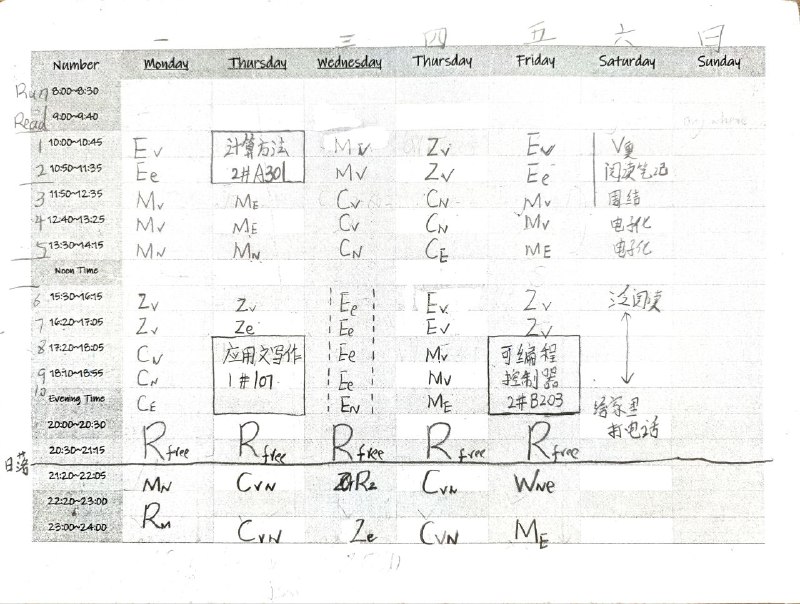 一 三 四 五 六 日
Number Monday Thursday Wednesday Thursday Friday Saturday Sunday
Run 8:00~8:30
Read 9:00~9:40
1 10:00~10:45 Ev 计算方法 Mv Zv Ev V复
2 10:50~11:35 Ee 2#A301 Mv Zv Ee 阅读笔记
3 11:50~12:35 Mv ME Cv CN Mv 周结
4 12:40~13:25 Mv ME Cv CN Mv 电子化
5 13:30~14:15 MN MN CN CE ME 电子化
Noon Time
6 15:30~16:15 Zv Zv Ee Ev Zv 泛阅读
7 16:20~17:05 Zv Ze Ee Ev Zv
8 17:20~18:05 CN 应用文写作 Ee Mv 可编程
9 18:10~18:55 CN 1#107 Ee Mv 控制器
10 Evening Time CE EN ME 2#B203 给家里
打电话
20:00~20:30 Rfree Rfree Rfree Rfree Rfree
20:30~21:15
日落
21:20~22:05 MN CVN R2 CVN WNe
22:20~23:00 RM
23:00~24:00 CVN Ze CVN ME